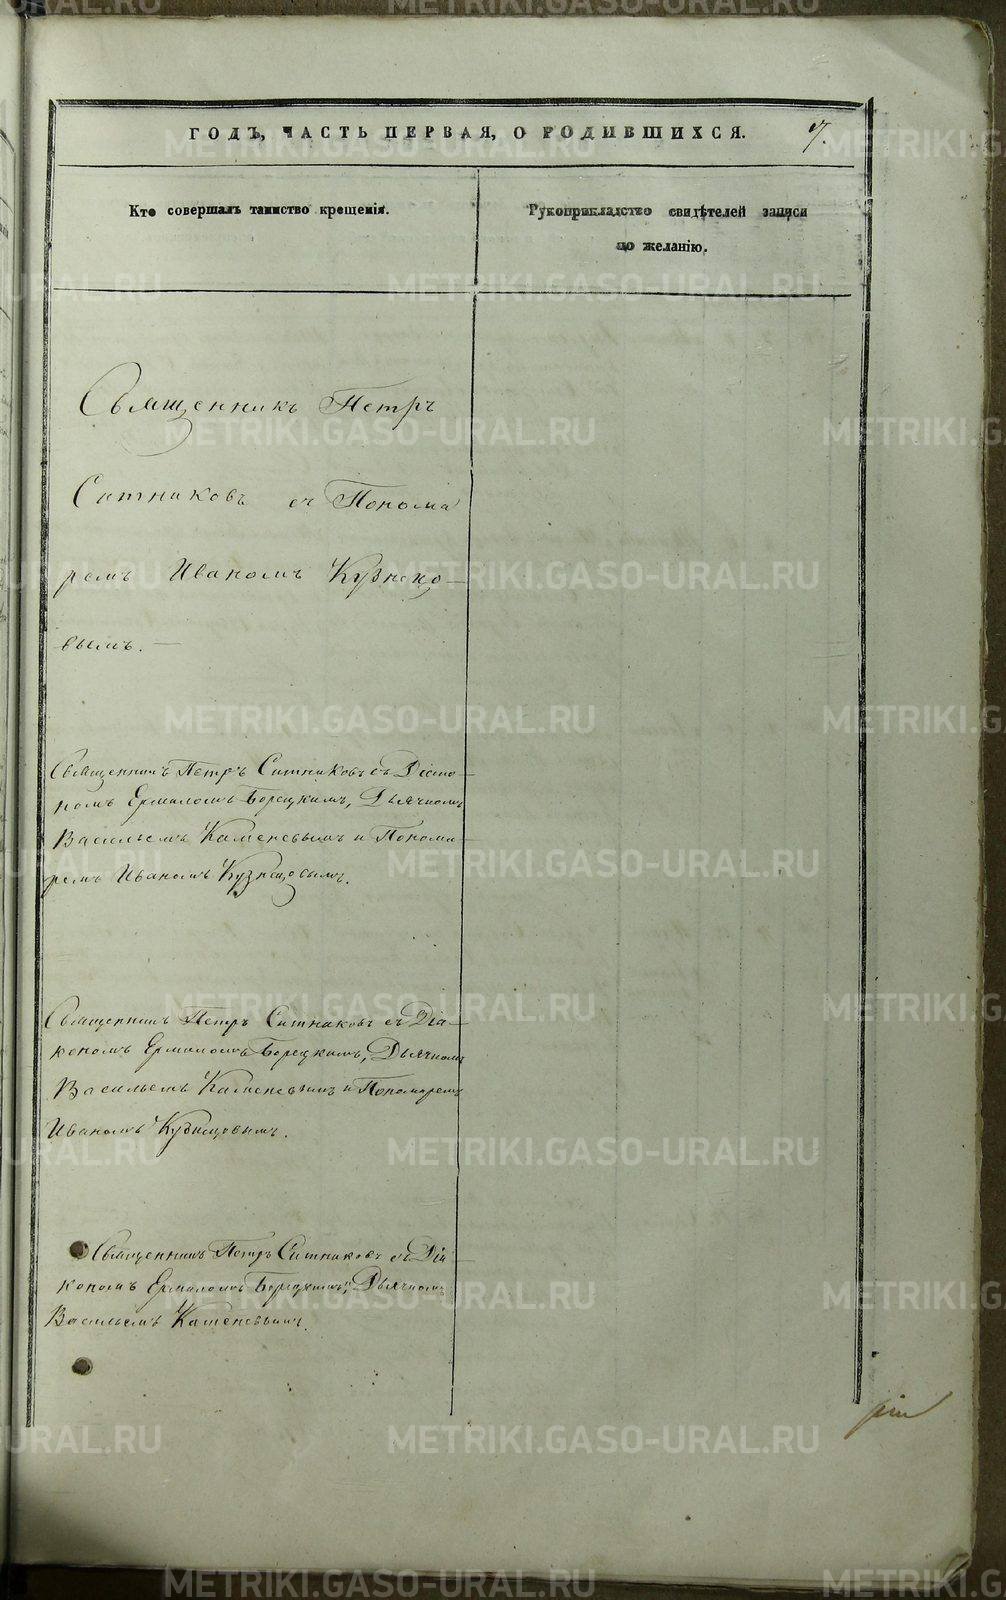 ГОДЪ, ЧАСТЬ ПЕРВАЯ, О РОДИВШИХСЯ. 7.
Кто совершалъ таинство крещенія.
Рукоприкладство свидѣтелей записи
по желанію.
Священникъ Петръ
Ситниковъ съ Понома
ремъ Иваномъ Кузнецо-
вымъ. —
Священникъ Петръ Ситниковъ съ Діако-
номъ Ермиломъ Борецкимъ, Дьячкомъ
Васильемъ Каменевымъ и Понома-
ремъ Иваномъ Кузнецовымъ.
Священникъ Петръ Ситниковъ съ Діа-
кономъ Ермиломъ Борецкимъ, Дьячкомъ
Васильемъ Каменевымъ и Пономаремъ
Иваномъ Кузнецовымъ.
Священникъ Петръ Ситниковъ съ Діа-
кономъ Ермиломъ Борецкимъ, Дьячкомъ
Васильемъ Каменевымъ.
METRIKI.GASO-URAL.RU